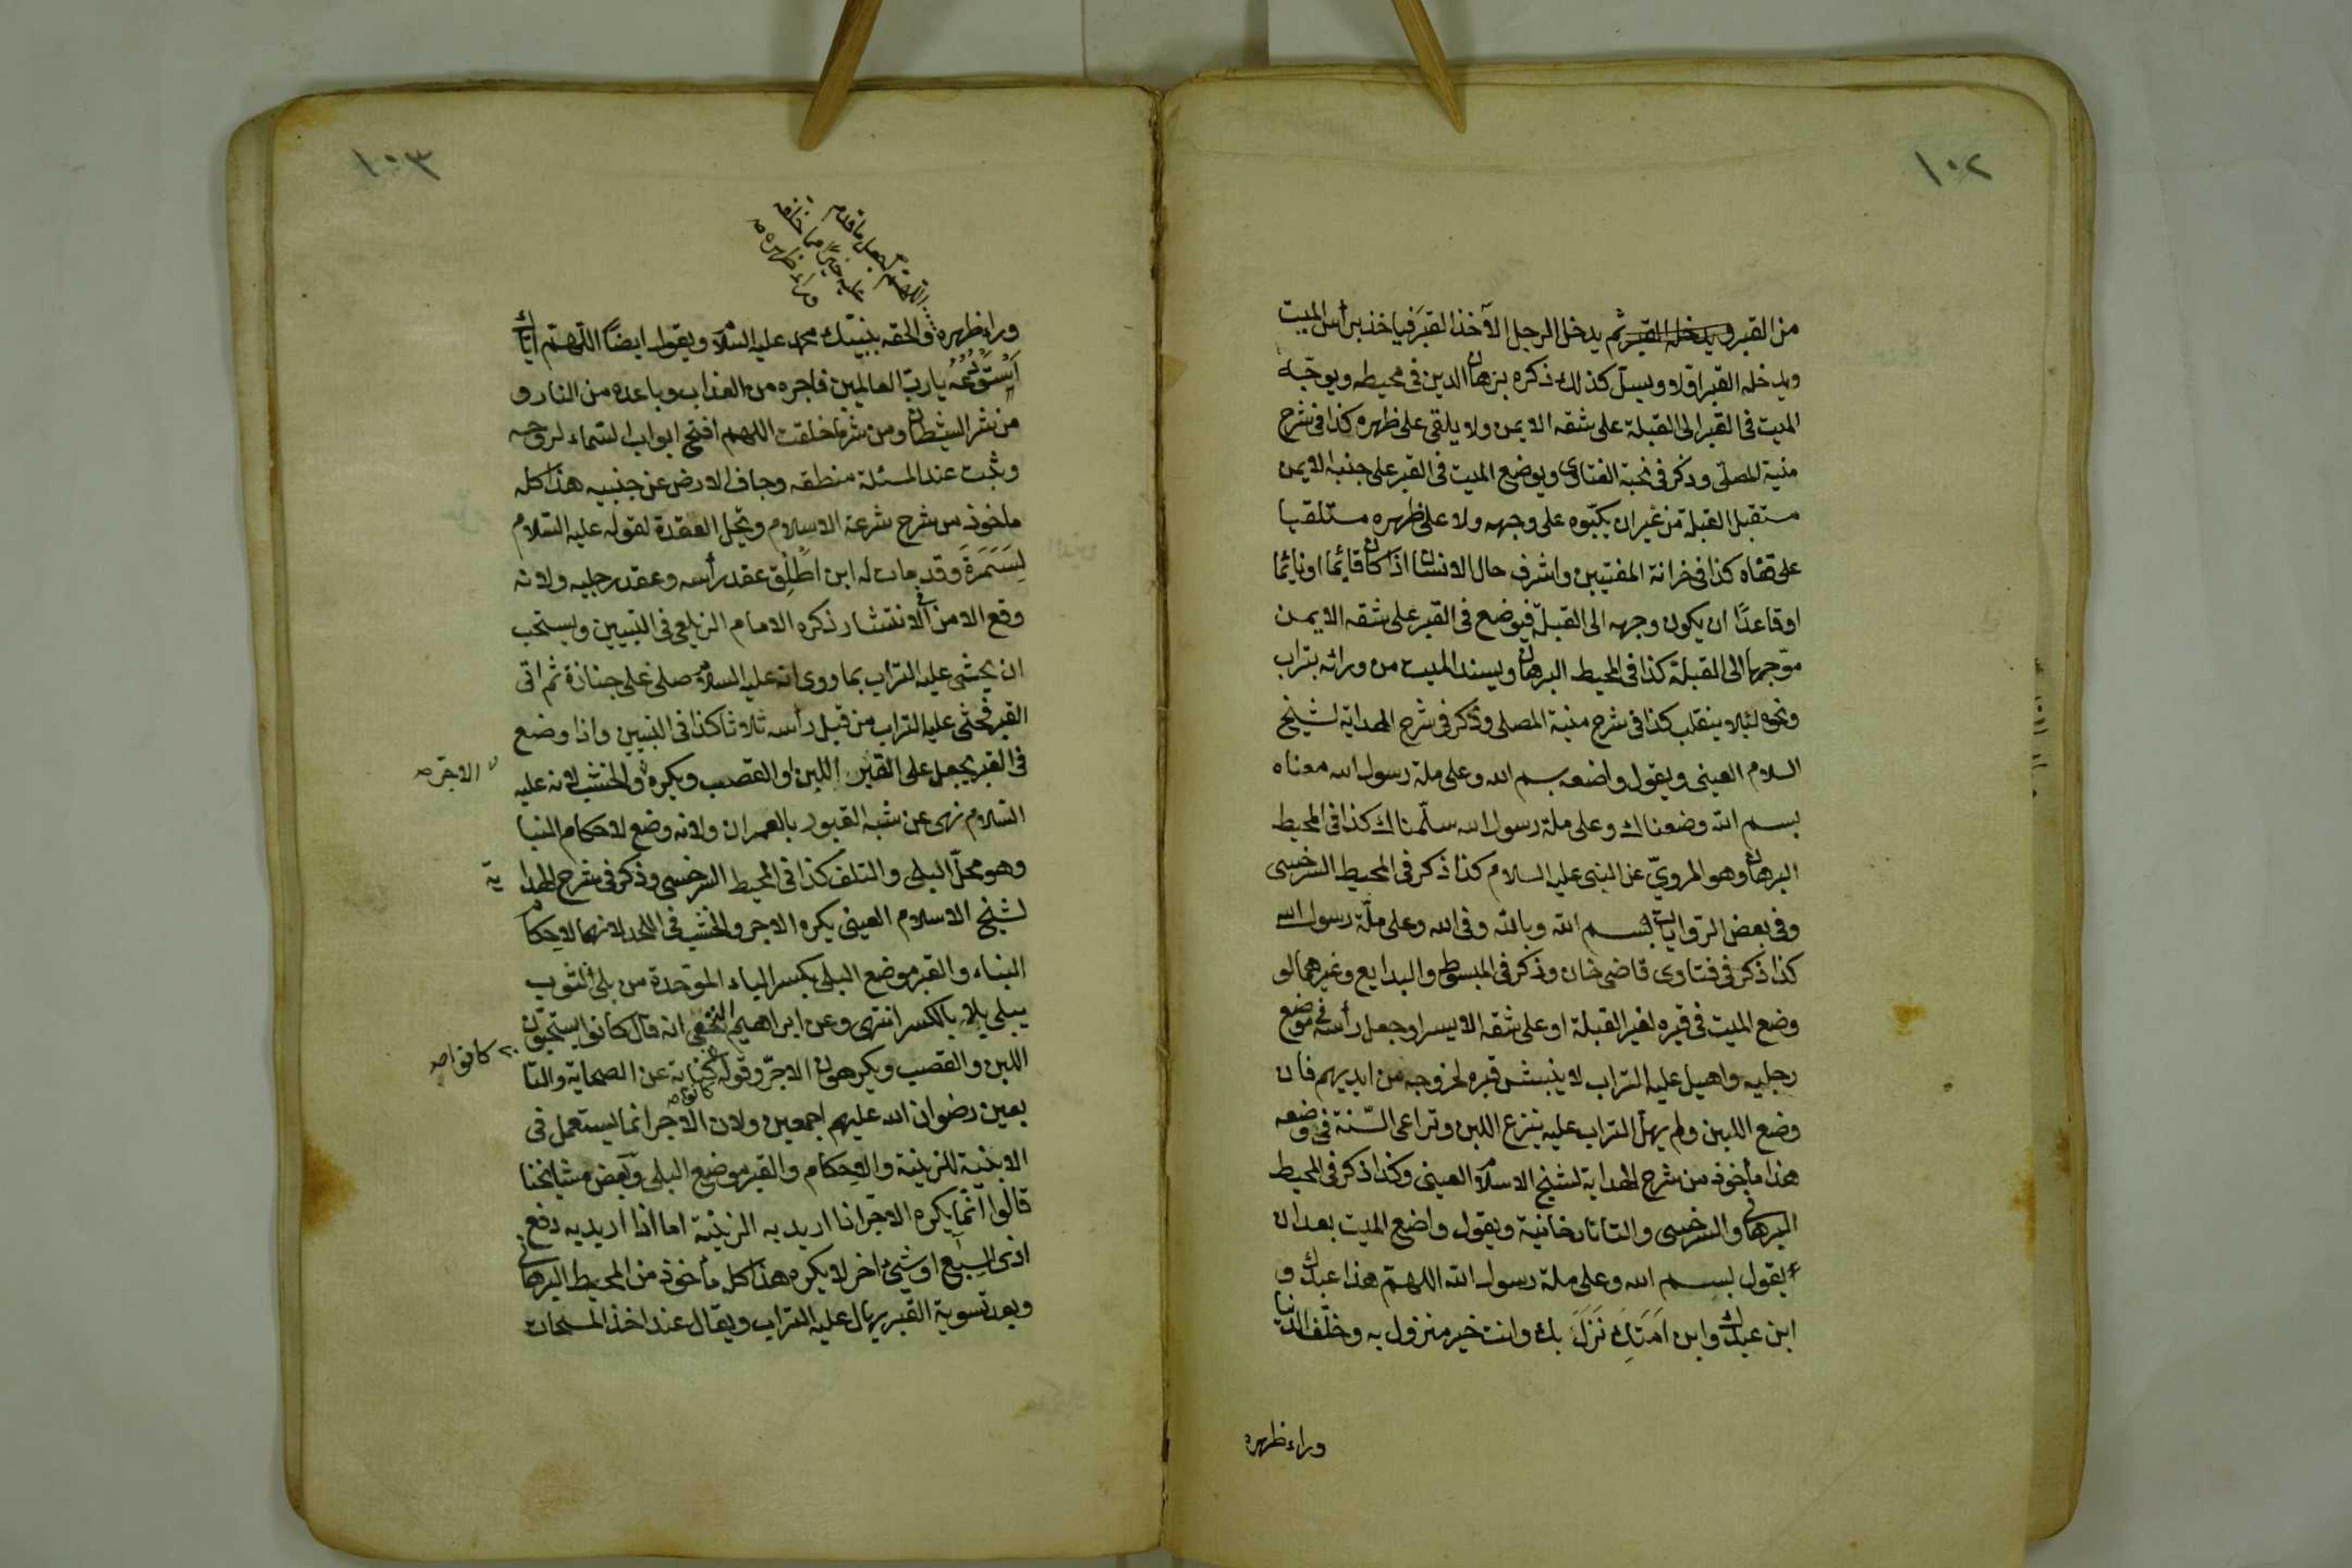 ١٠٢
من القبر ويدخله القبر ثم يدخل الرجل الآخذ القبر فياخذ برأس الميت
ويدخله القبر اولا ويسل كذلك ذكره برهان الدين فى محيطه ويوجّه
الميت فى القبر الى القبلة على شقه الايمن ولا يلقى على ظهره كذا فى شرح
منية المصلّى وذكر فى نخبة الفتاوى ويوضع الميت فى القبر على جنبه الايمن
مستقبل القبلة من غير ان يكبّوه على وجهه ولا على ظهره مستلقيا
على قفاه كذا فى خزانة المفتيين واشرف حال الانسان اذا كان قائما او نائما
او قاعدًا ان يكون وجهه الى القبلة فيوضع فى القبر على شقه الايمن
موجها الى القبلة كذا فى المحيط البرهانى ويسند الميت من ورائه بتراب
ونحوه لئلا ينقلب كذا فى شرح منية المصلى وذكر فى شرح الهداية لشيخ
السلام العينى ويقول واضعه بسم الله وعلى ملة رسول الله معناه
بسم الله وضعناك وعلى ملة رسول الله سلّمناك كذا فى المحيط
البرهانى وهو المرويّ عن النبى عليه السلام كذا ذكر فى المحيط السرخسى
وفى بعض الروايات بسم الله وبالله وفى الله وعلى ملّة رسول الله
كذا ذكر فى فتاوى قاضى خان وذكر فى المبسوط والبدايع وغيرهما لو
وضع الميت فى قبره لغير القبلة او على شقه الايسر او جعل رأسه فى موضع
رجليه واهيل عليه التراب لا ينبش قبره لخروجه من ايديهم فان
وضع اللبن ولم يهل التراب عليه ينزع اللبن وتراعى السّنة فى وضعه
هذا مأخوذ من شرح الهداية لشيخ الاسلام العينى وكذا ذكر فى المحيط
البرهانى والسرخسى والتاتارخانية ويقول واضع الميت بعد ان
يقول بسم الله وعلى ملة رسول الله اللهمّ هذا عبدك و
ابن عبدك وابن اَمَتِكَ نَزَلَ بك وانت خير منزول به وخلّف الدنيا
وراء ظهره
١٠٣
اللهم اجعل ما قدم
عليه خيرًا مما خلف
وراء ظهره
وراء ظهره والحقه بنبيّك محمد عليه السلام ويقول ايضًا اللهمّ ايّاك
اَسْتَوْدِعُهُ يا ربّ العالمين فاجره من العذاب وباعده من النار و
من شر الشيطان ومن شر ما خلقت اللهم افتح ابواب السّماء لروحه
وثبت عند المسئلة منطقه وجاف الارض عن جنبيه هذا كله
مأخوذ من شرح شرعة الاسلام وتحل العقدة لقوله عليه السّلام
لِسَمَرَةَ وقد مات له ابن اَطْلِق عقد رأسه وعقد رجليه ولانه
وقع الامن من الانتشار ذكره الامام الزيلعى فى التبيين ويستحب
ان يحثى عليه التراب بما روى انه عليه السلام صلى على جنازة ثم اتى
القبر فحثى عليه التراب من قبل رأسه ثلاثا كذا فى التبيين واذا وضع
فى القبر يجعل على القبر اللبن او القصب ويكره والخشب لانه عليه
الاجر صح
السّلام نهى عن شبه القبور بالعمران ولانه وضع لاحكام البنا
وهو محلّ البلى والتلف كذا فى المحيط السرخسى وذكر فى شرح الهداية
لشيخ الاسلام العينى يكره الاجر والخشب فى اللحد لانهما لاحكام
البناء والقبر موضع البلى بكسر الباء الموحدة من بلى الثوب
يبلى بلا بالكسر انتهى وعن ابراهيم النخعى انه قال كانوا يستحبّون
اللبن والقصب ويكرهون الاجرّ وقوله كناية عن الصحابة والتا
كانوا صح
بعين رضوان الله عليهم اجمعين ولان الاجر انما يستعمل فى
الابنية للزينة والاحكام والقبر موضع البلى وبعض مشايخنا
قالوا انّما يكره الاجر اذا اريد به الزينة اما اذا اريد به دفع
اذى السبع او شئ اخر لا يكره هذا كله مأخوذ من المحيط البرهانى
وبعد تسوية القبر يهال عليه التراب ويقال عند اخذ المسحات